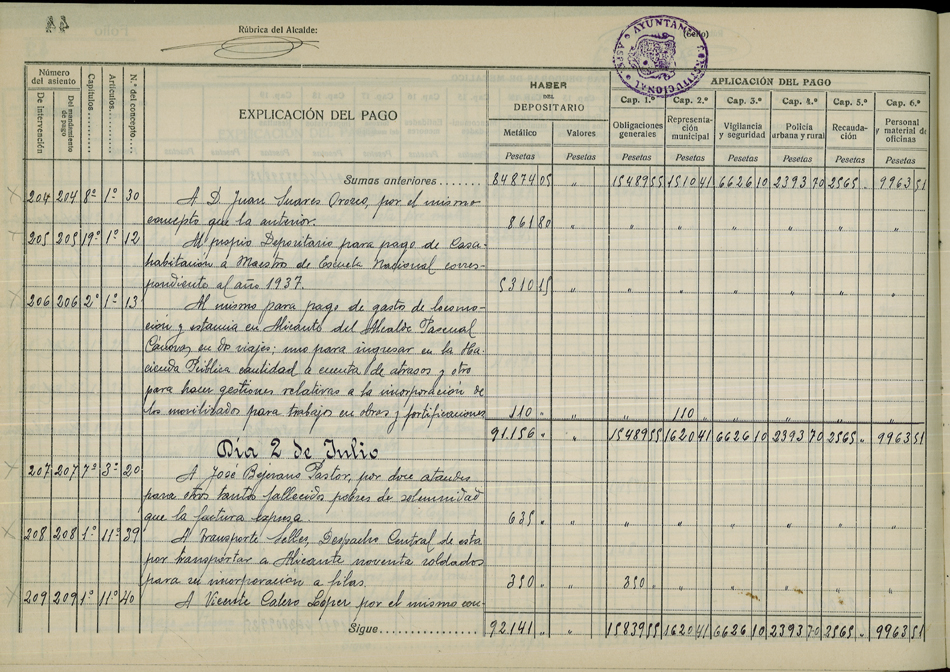 Rúbrica del Alcalde:
(Sello)
AYUNTAMIENTO CONSTITUCIONAL
Número del asiento
De Intervención
Del mandamiento de pago
Capítulos
Artículos
N.º del concepto
EXPLICACIÓN DEL PAGO
HABER DEL DEPOSITARIO
Metálico
Valores
Pesetas
Pesetas
APLICACIÓN DEL PAGO
Cap. 1.º Cap. 2.º Cap. 3.º Cap. 4.º Cap. 5.º Cap. 6.º
Obligaciones generales
Representación municipal
Vigilancia y seguridad
Policía urbana y rural
Recaudación
Personal y material de oficinas
Pesetas Pesetas Pesetas Pesetas Pesetas Pesetas
Sumas anteriores ....... 84874 05 " 15489 55 1510 41 6626 10 2393 70 2565 " 9963 51
204 204 8º 1º 30 A D. Juan Suares Orozco, por el mismo
concepto que la anterior. 861 80 " " " " " " "
205 205 19º 1º 12 Al propio Depositario para pago de Casa-
habitación a Maestro de Escuela Nacional corres-
pondiente al año 1937. 5310 15 " " " " " " "
206 206 2º 1º 13 Al mismo para pago de gasto de locomo-
ción y estancia en Alicante del Alcalde Pascual
Cánovas en dos viajes; uno para ingresar en la Ha-
cienda Pública cantidad a cuenta de atrasos y otro
para hacer gestiones relativas a la incorporación de
los movilizados para trabajos en obras y fortificaciones 110 " " " 110 " " " "
91.156 " " 15489 55 1620 41 6626 10 2393 70 2565 " 9963 51
Día 2 de Julio
207 207 7º 3º 20 A José Bejerano Pastor, por doce ataudes
para otros tantos fallecidos pobres de solemnidad
que la factura expresa. 635 " " " " " " " "
208 208 1º 11º 39 A Transporte Soller, Despacho Central de esta
por transportar a Alicante noventa soldados
para su incorporación a filas. 350 " " 350 " " " " " "
209 209 1º 11º 40 A Vicente Calero López por el mismo con-
Sigue ................. 92141 " " 15839 55 1620 41 6626 10 2393 70 2565 " 9963 51